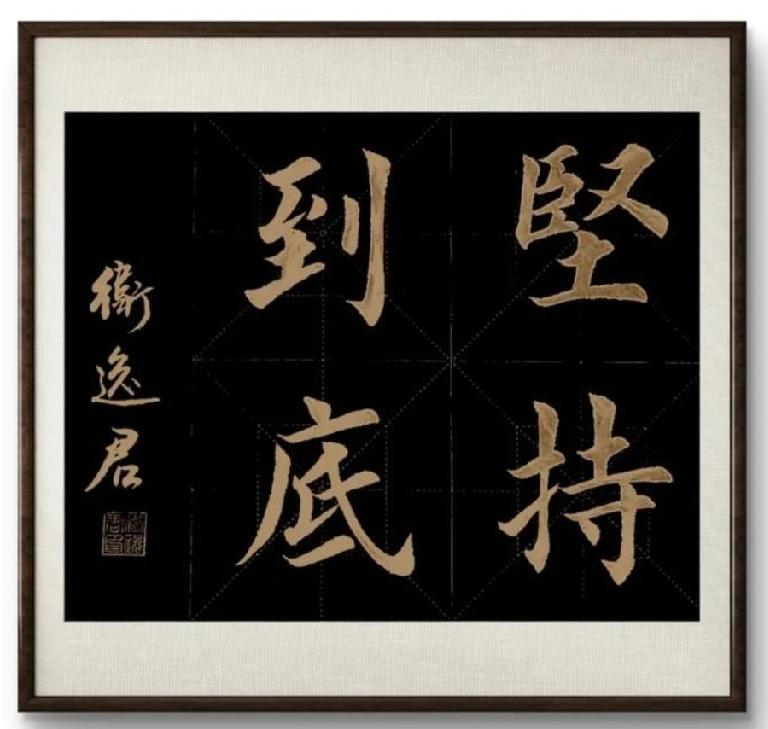 堅持
到底
衞逸君